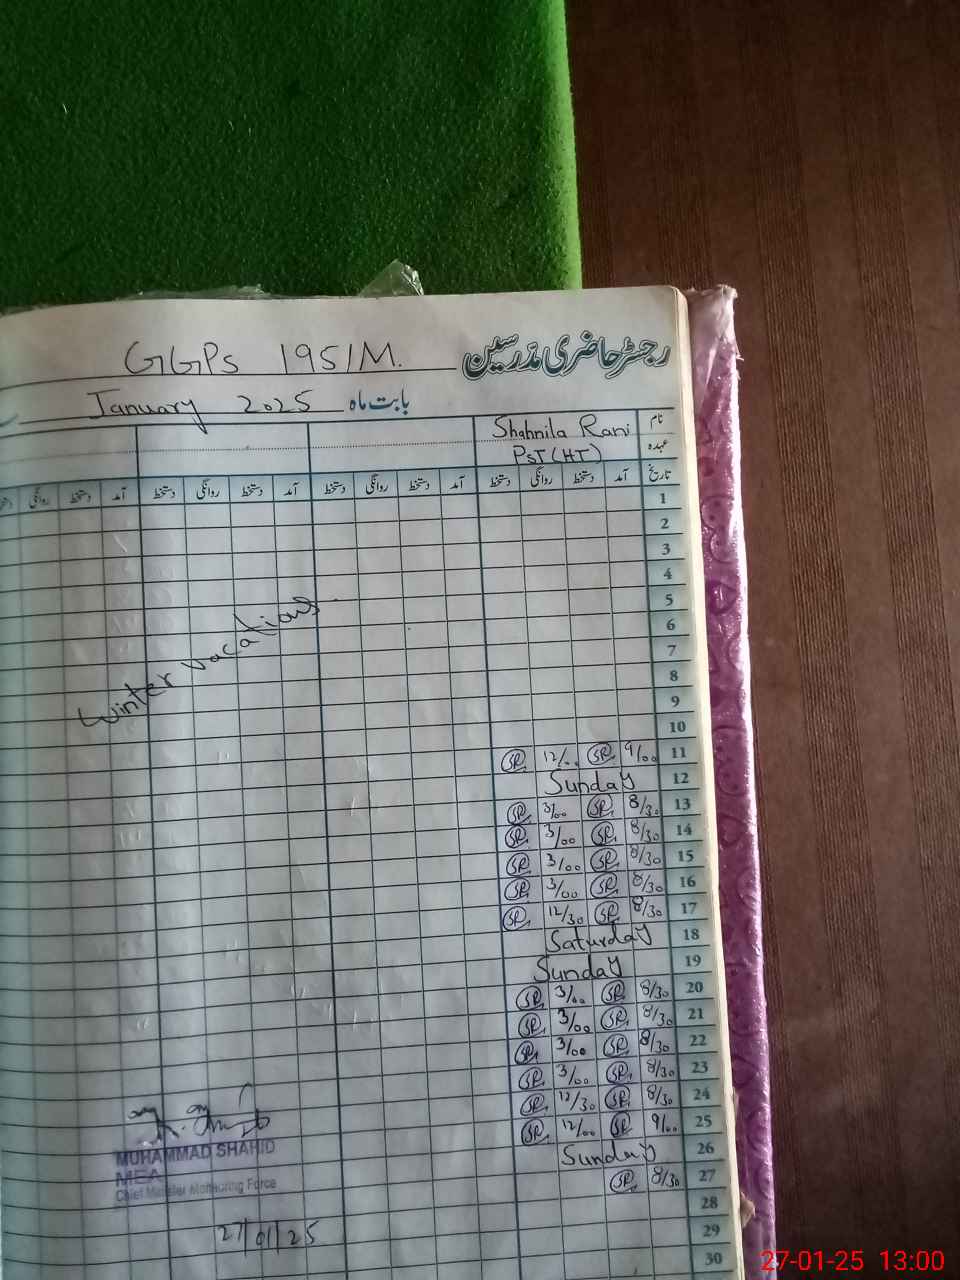 رجسٹر حاضری مدرسین GGPs 195/M.
بابت ماہ January 2025
نام Shahnila Rani
عہدہ PST (HT)
تاریخ آمد دستخط روانگی دستخط آمد دستخط روانگی دستخط آمد دستخط روانگی دستخط آمد دستخط روانگی
1
2
3
4
5
6
7
8
9
10
Winter vacations.
11 9/00 SR 12/00 SR
12 Sunday
13 8/30 SR 3/00 SR
14 8/30 SR 3/00 SR
15 8/30 SR 3/00 SR
16 8/30 SR 3/00 SR
17 8/30 SR 12/30 SR
18 Saturday
19 Sunday
20 8/30 SR 3/00 SR
21 8/30 SR 3/00 SR
22 8/30 SR 3/00 SR
23 8/30 SR 3/00 SR
24 8/30 SR 12/30 SR
25 9/00 SR 12/00 SR
26 Sunday
27 8/30 SR
28
29
30
MUHAMMAD SHAHID
MEA
Chief Minister Monitoring Force
27/01/25
27-01-25 13:00